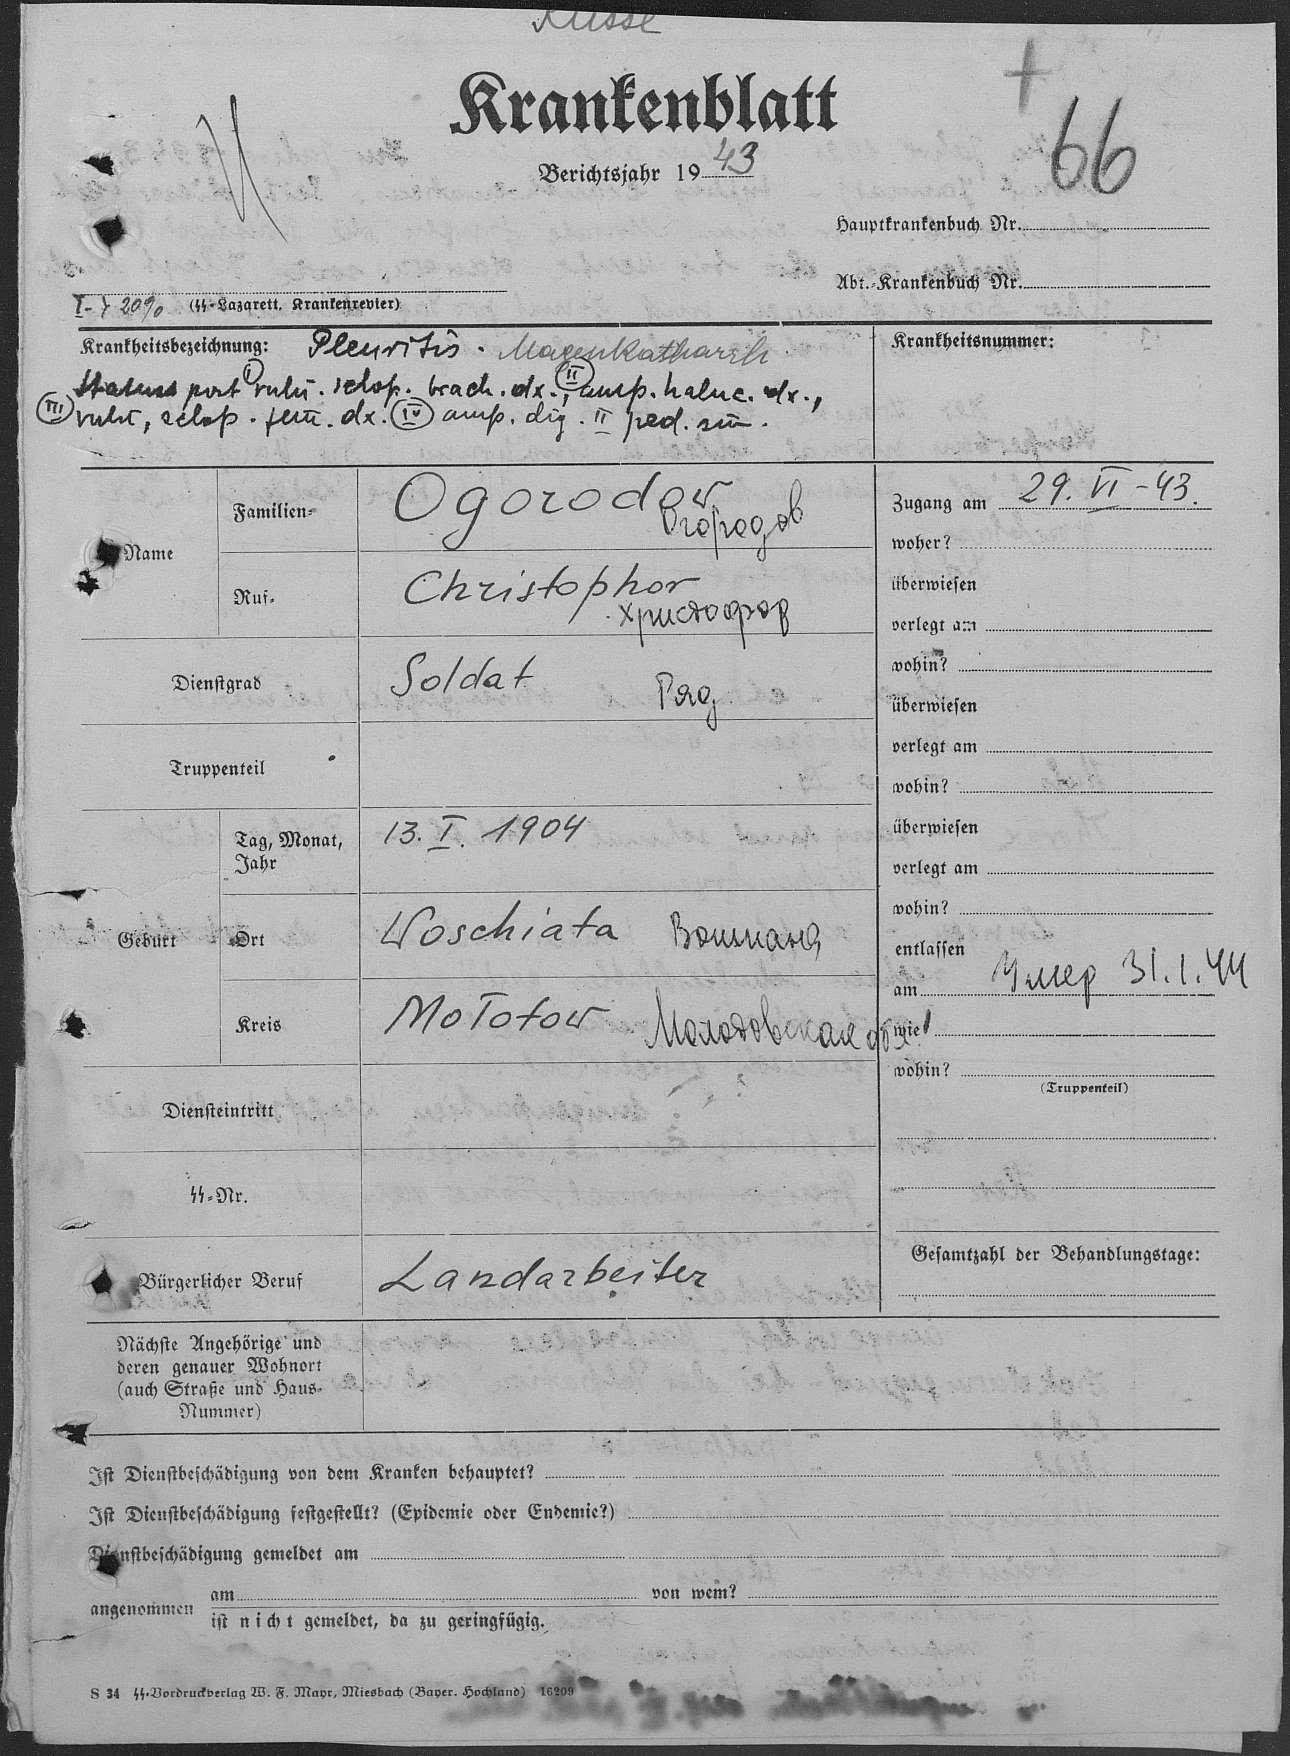 Russe
Krankenblatt
+
66
Berichtsjahr 1943
Hauptkrankenbuch Nr.
Abt.-Krankenbuch Nr.
I-7 20%
(SS-Lazarett, Krankenrevier)
Krankheitsbezeichnung: Pleuritis. Magenkatharrh
Status post I vuln. sclop. brach. dx., II amp. haluc. dx.,
III vuln, sclop. fem. dx. IV amp. dig. II ped. sin.
Krankheitsnummer:
Name
Familien- Ogorodow
Огородов
Ruf- Christophor
Христофор
Dienstgrad Soldat Ряд
Truppenteil
Geburt
Tag, Monat, Jahr 13. I. 1904
Ort Woschiata
Kreis Molotow Молотовская обл
Diensteintritt
SS-Nr.
Bürgerlicher Beruf Landarbeiter
Zugang am 29. VI-43.
woher?
überwiesen
verlegt am
wohin?
überwiesen
verlegt am
wohin?
überwiesen
verlegt am
wohin?
entlassen
am Умер 31.1.44
wie
wohin?
(Truppenteil)
Gesamtzahl der Behandlungstage:
Nächste Angehörige und
deren genauer Wohnort
(auch Straße und Haus-
Nummer)
Ist Dienstbeschädigung von dem Kranken behauptet?
Ist Dienstbeschädigung festgestellt? (Epidemie oder Endemie?)
Dienstbeschädigung gemeldet am
angenommen am von wem?
ist nicht gemeldet, da zu geringfügig.
S 34 SS-Vordruckverlag W. F. Mayr, Miesbach (Bayer. Hochland) 16209